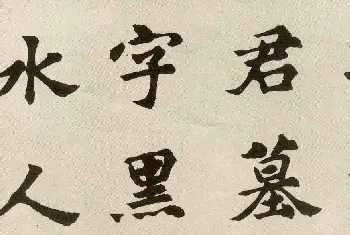 君墓
字黑
水人